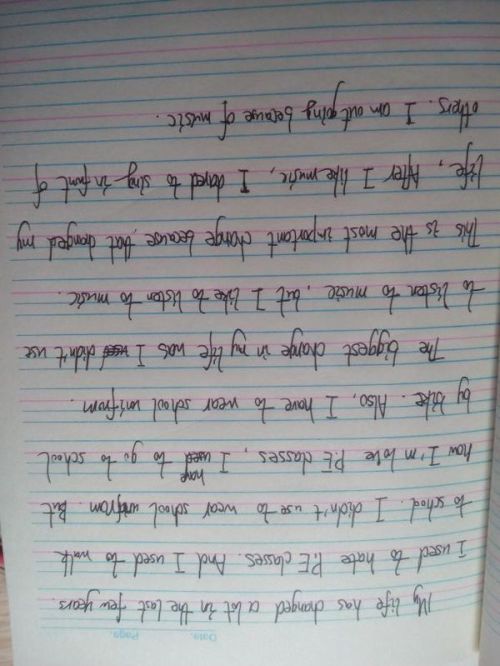 Date. Page.
My life has changed a lot in the last few years.
I used to hate P.E classes. And I used to walk
to school. I didn't use to wear school unifrom. But
now I'm love P.E classes, I have to go to school
by bike. Also, I have to wear school unifrom.
The biggest change in my life was I didn't use
to listen to music, but I like to listen to music.
This is the most inportant change because that changed my
life, After I like music, I dared to sing in front of
others. I am out going because of music.